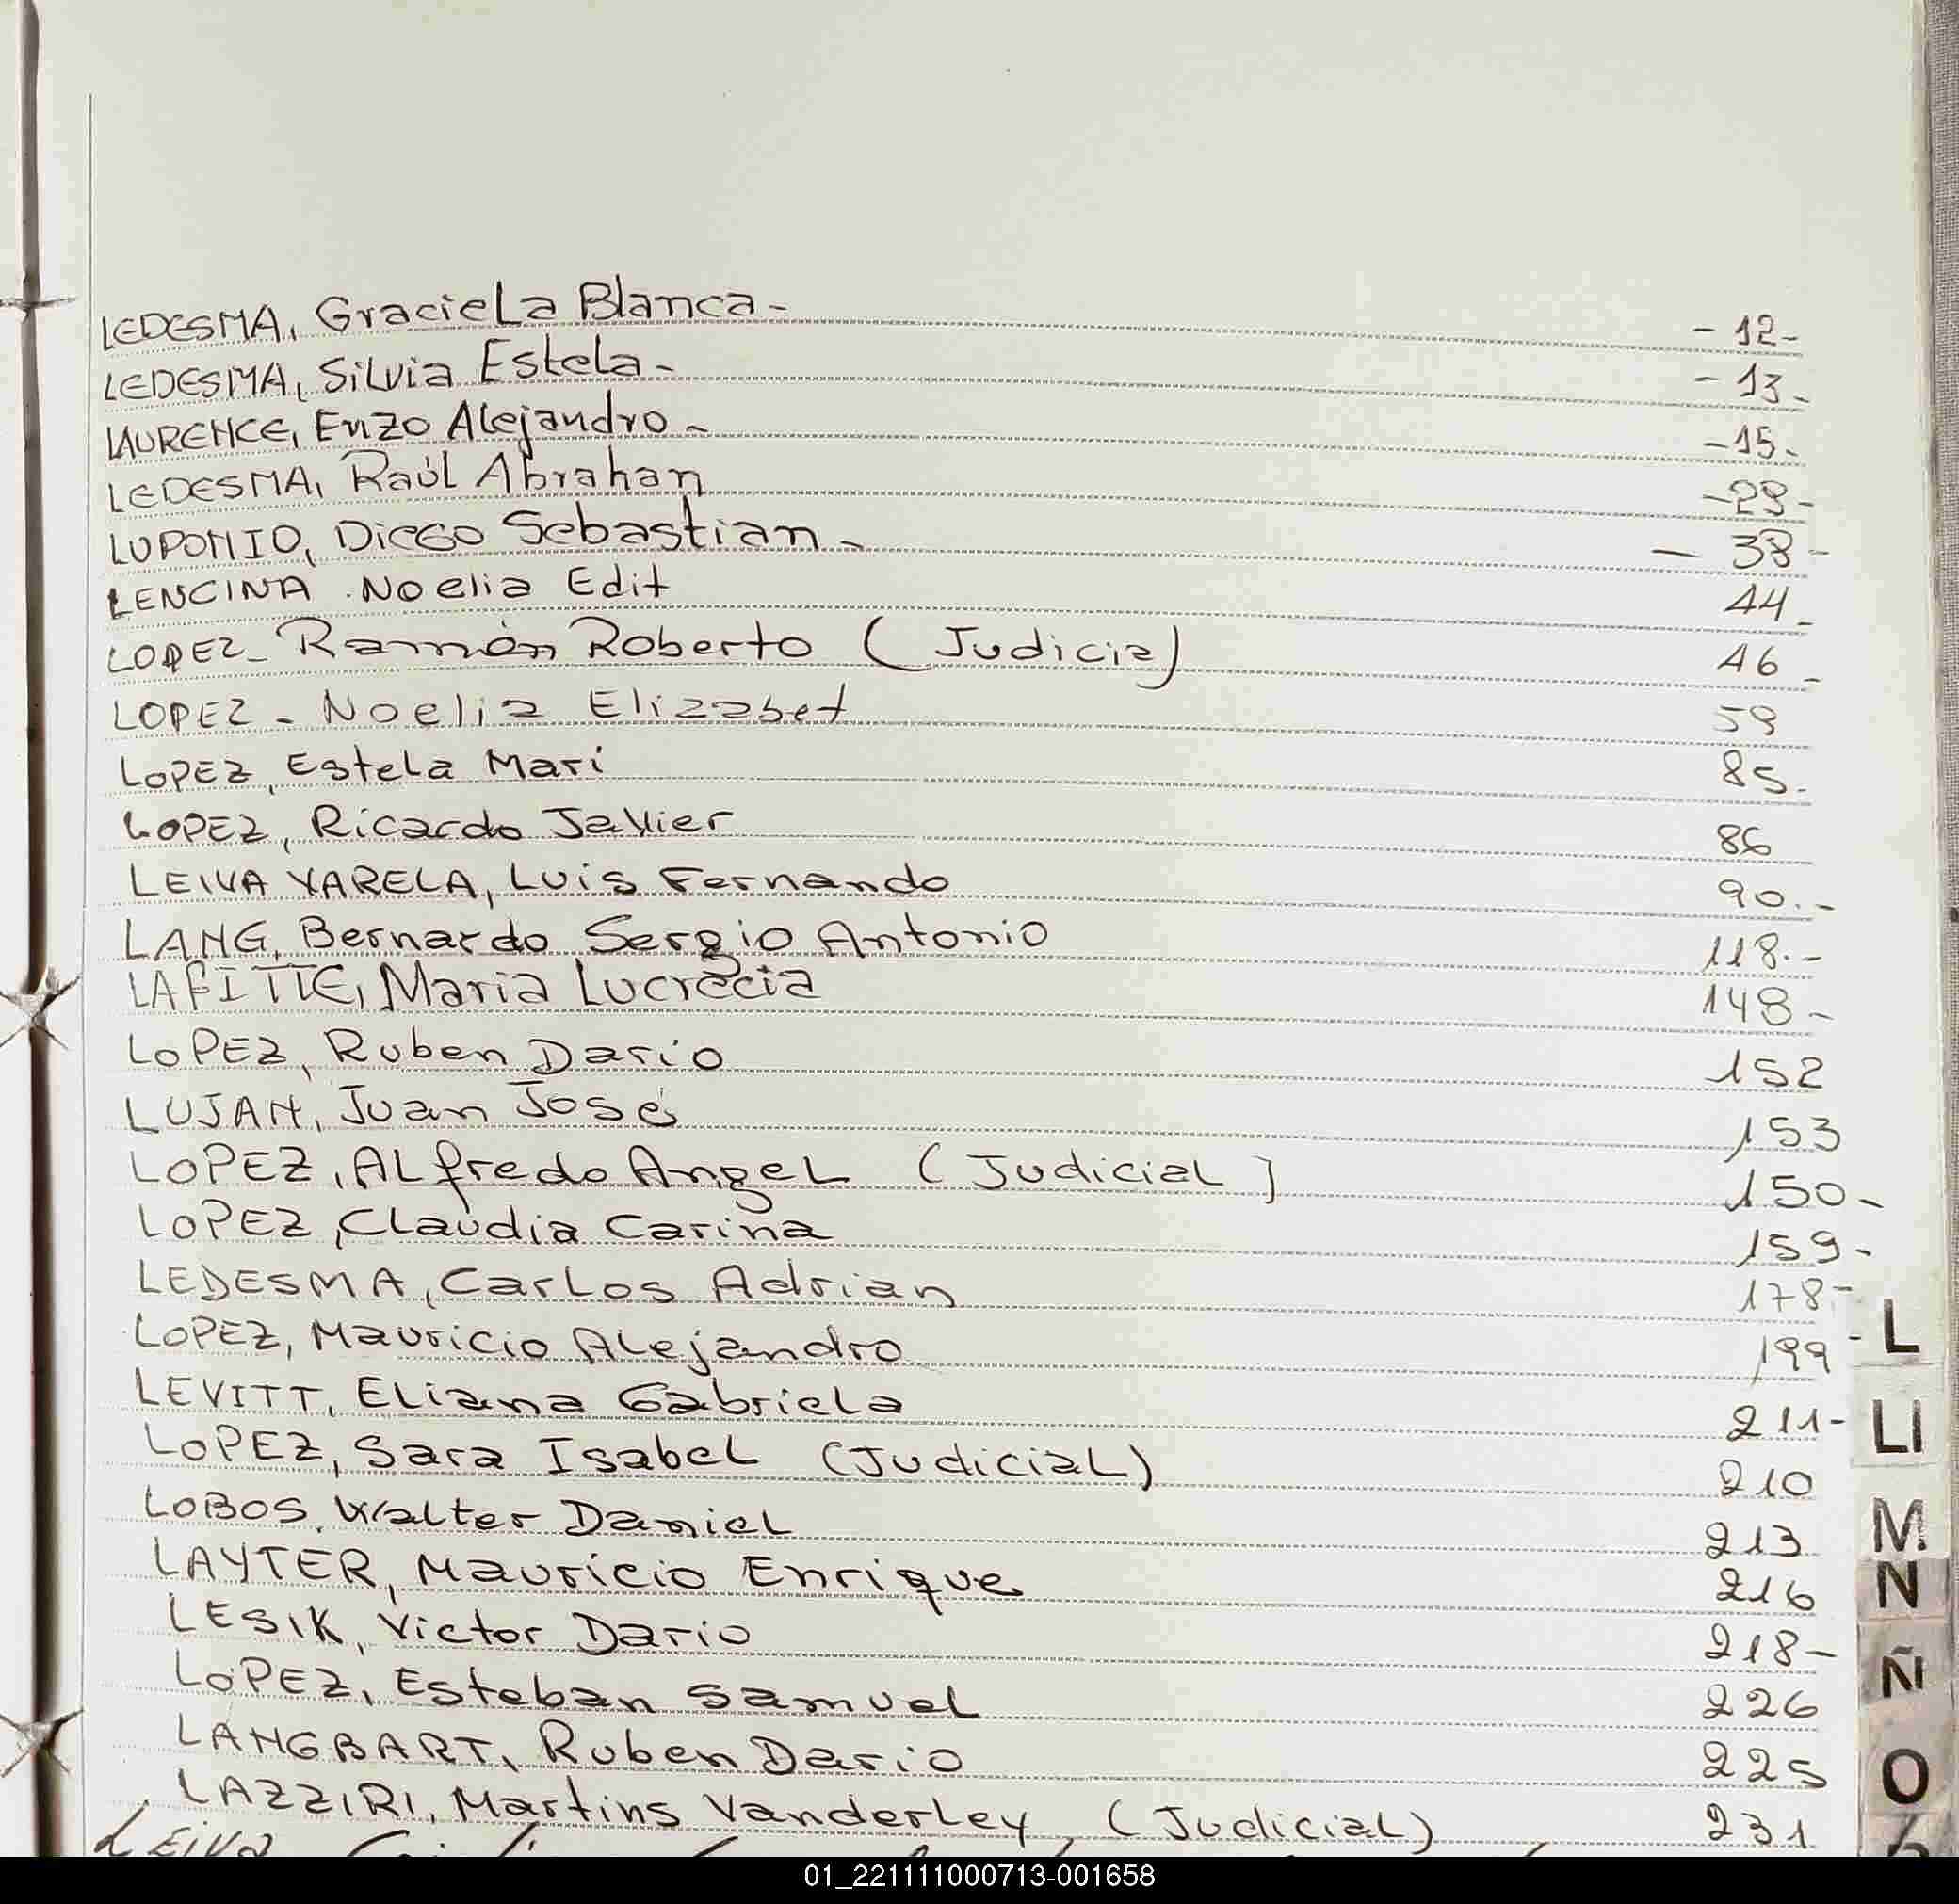 LEDESMA, Graciela Blanca - - 12 -
LEDESMA, Silvia Estela - - 13 -
LAURENCE, Enzo Alejandro - - 15 -
LEDESMA, Raúl Abrahan - 29 -
LUPONIO, Diego Sebastian - - 38 -
LENCINA Noelia Edit 44 -
LOPEZ - Ramón Roberto (Judicia) 46 -
LOPEZ - Noelia Elizabet 59
LOPEZ, Estela Mari 85 -
LOPEZ, Ricardo Javier 86
LEIVA VARELA, Luis Fernando 90. -
LANG, Bernardo Sergio Antonio 118. -
LAFITTE, Maria Lucrecia 148 -
LOPEZ, Ruben Dario 152
LUJAN, Juan José 153
LOPEZ, ALfredo Angel (Judicial) 150 -
LOPEZ, Claudia Carina 159 -
LEDESMA, Carlos Adrian 178 -
LOPEZ, Mauricio Alejandro 199 -
LEVITT, Eliana Gabriela 211 -
LOPEZ, Sara Isabel (Judicial) 210
LOBOS, Walter Daniel 213
LAYTER, Mauricio Enrique 216
LESIK, Victor Dario 218 -
LOPEZ, Esteban Samuel 226
LANGBART, Ruben Dario 225
LAZZIRI, Martins Vanderley, (Judicial) 231
Leiva
L
LI
M
N
Ñ
O
01_221111000713-001658